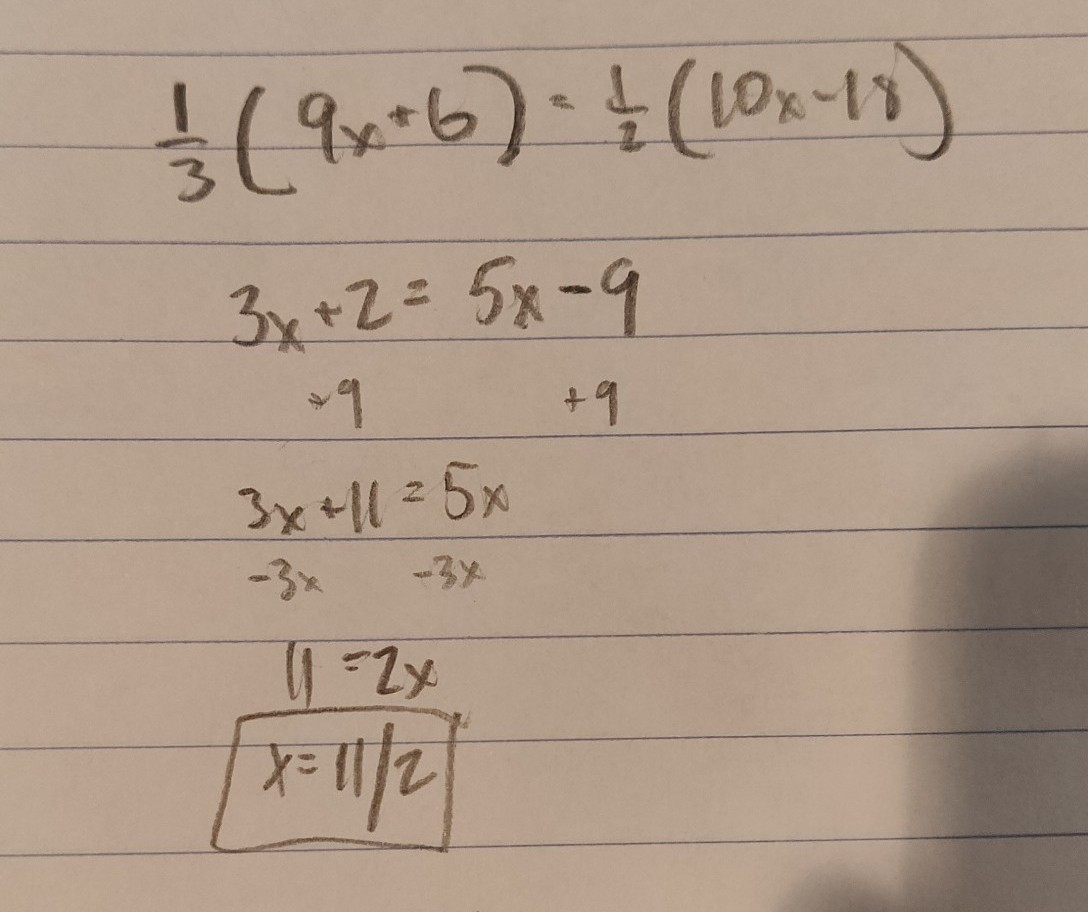 1/3 (9x+6) = 1/2 (10x-18)
3x+2 = 5x-9
+9 +9
3x+11 = 5x
-3x -3x
11 = 2x
x = 11/2